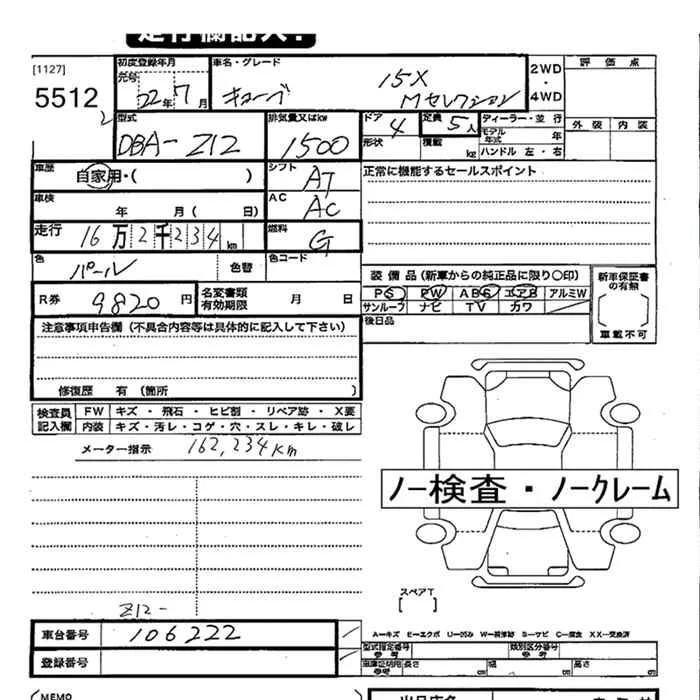 [1127]
5512
初度登録年月
元号
22年7月
車名・グレード
キューブ
15X
Mセレクション
2WD
・
4WD
評価点
外装 内装
型式
DBA-Z12
排気量又はkw
1500
ドア
4
形状
定員
5人
積載
kg
ディーラー・並行
モデル年式 年
ハンドル 左・右
車歴
自家用・( )
シフト
AT
正常に機能するセールスポイント
車検
年 月( 日)
AC
AC
走行
16万2千234km
燃料
G
色
パール
色替
色コード
装備品(新車からの純正品に限り〇印)
PS PW ABS エアB アルミW
サンルーフ ナビ TV カワ
新車保証書の有無
車載不可
R券
9820円
名変書類有効期限
月 日
後日品
注意事項申告欄(不具合内容等は具体的に記入して下さい)
修復歴 有(箇所 )
検査員記入欄
FW キズ・飛石・ヒビ割・リペア跡・X要
内装 キズ・汚レ・コゲ・穴・スレ・キレ・破レ
メーター指示 162,234km
ノー検査・ノークレーム
スペアT
[ ]
Z12-
車台番号
106222
登録番号
型式指定番号
参考
類別区分番号
参考
長さ
幅
高さ
(MEMO